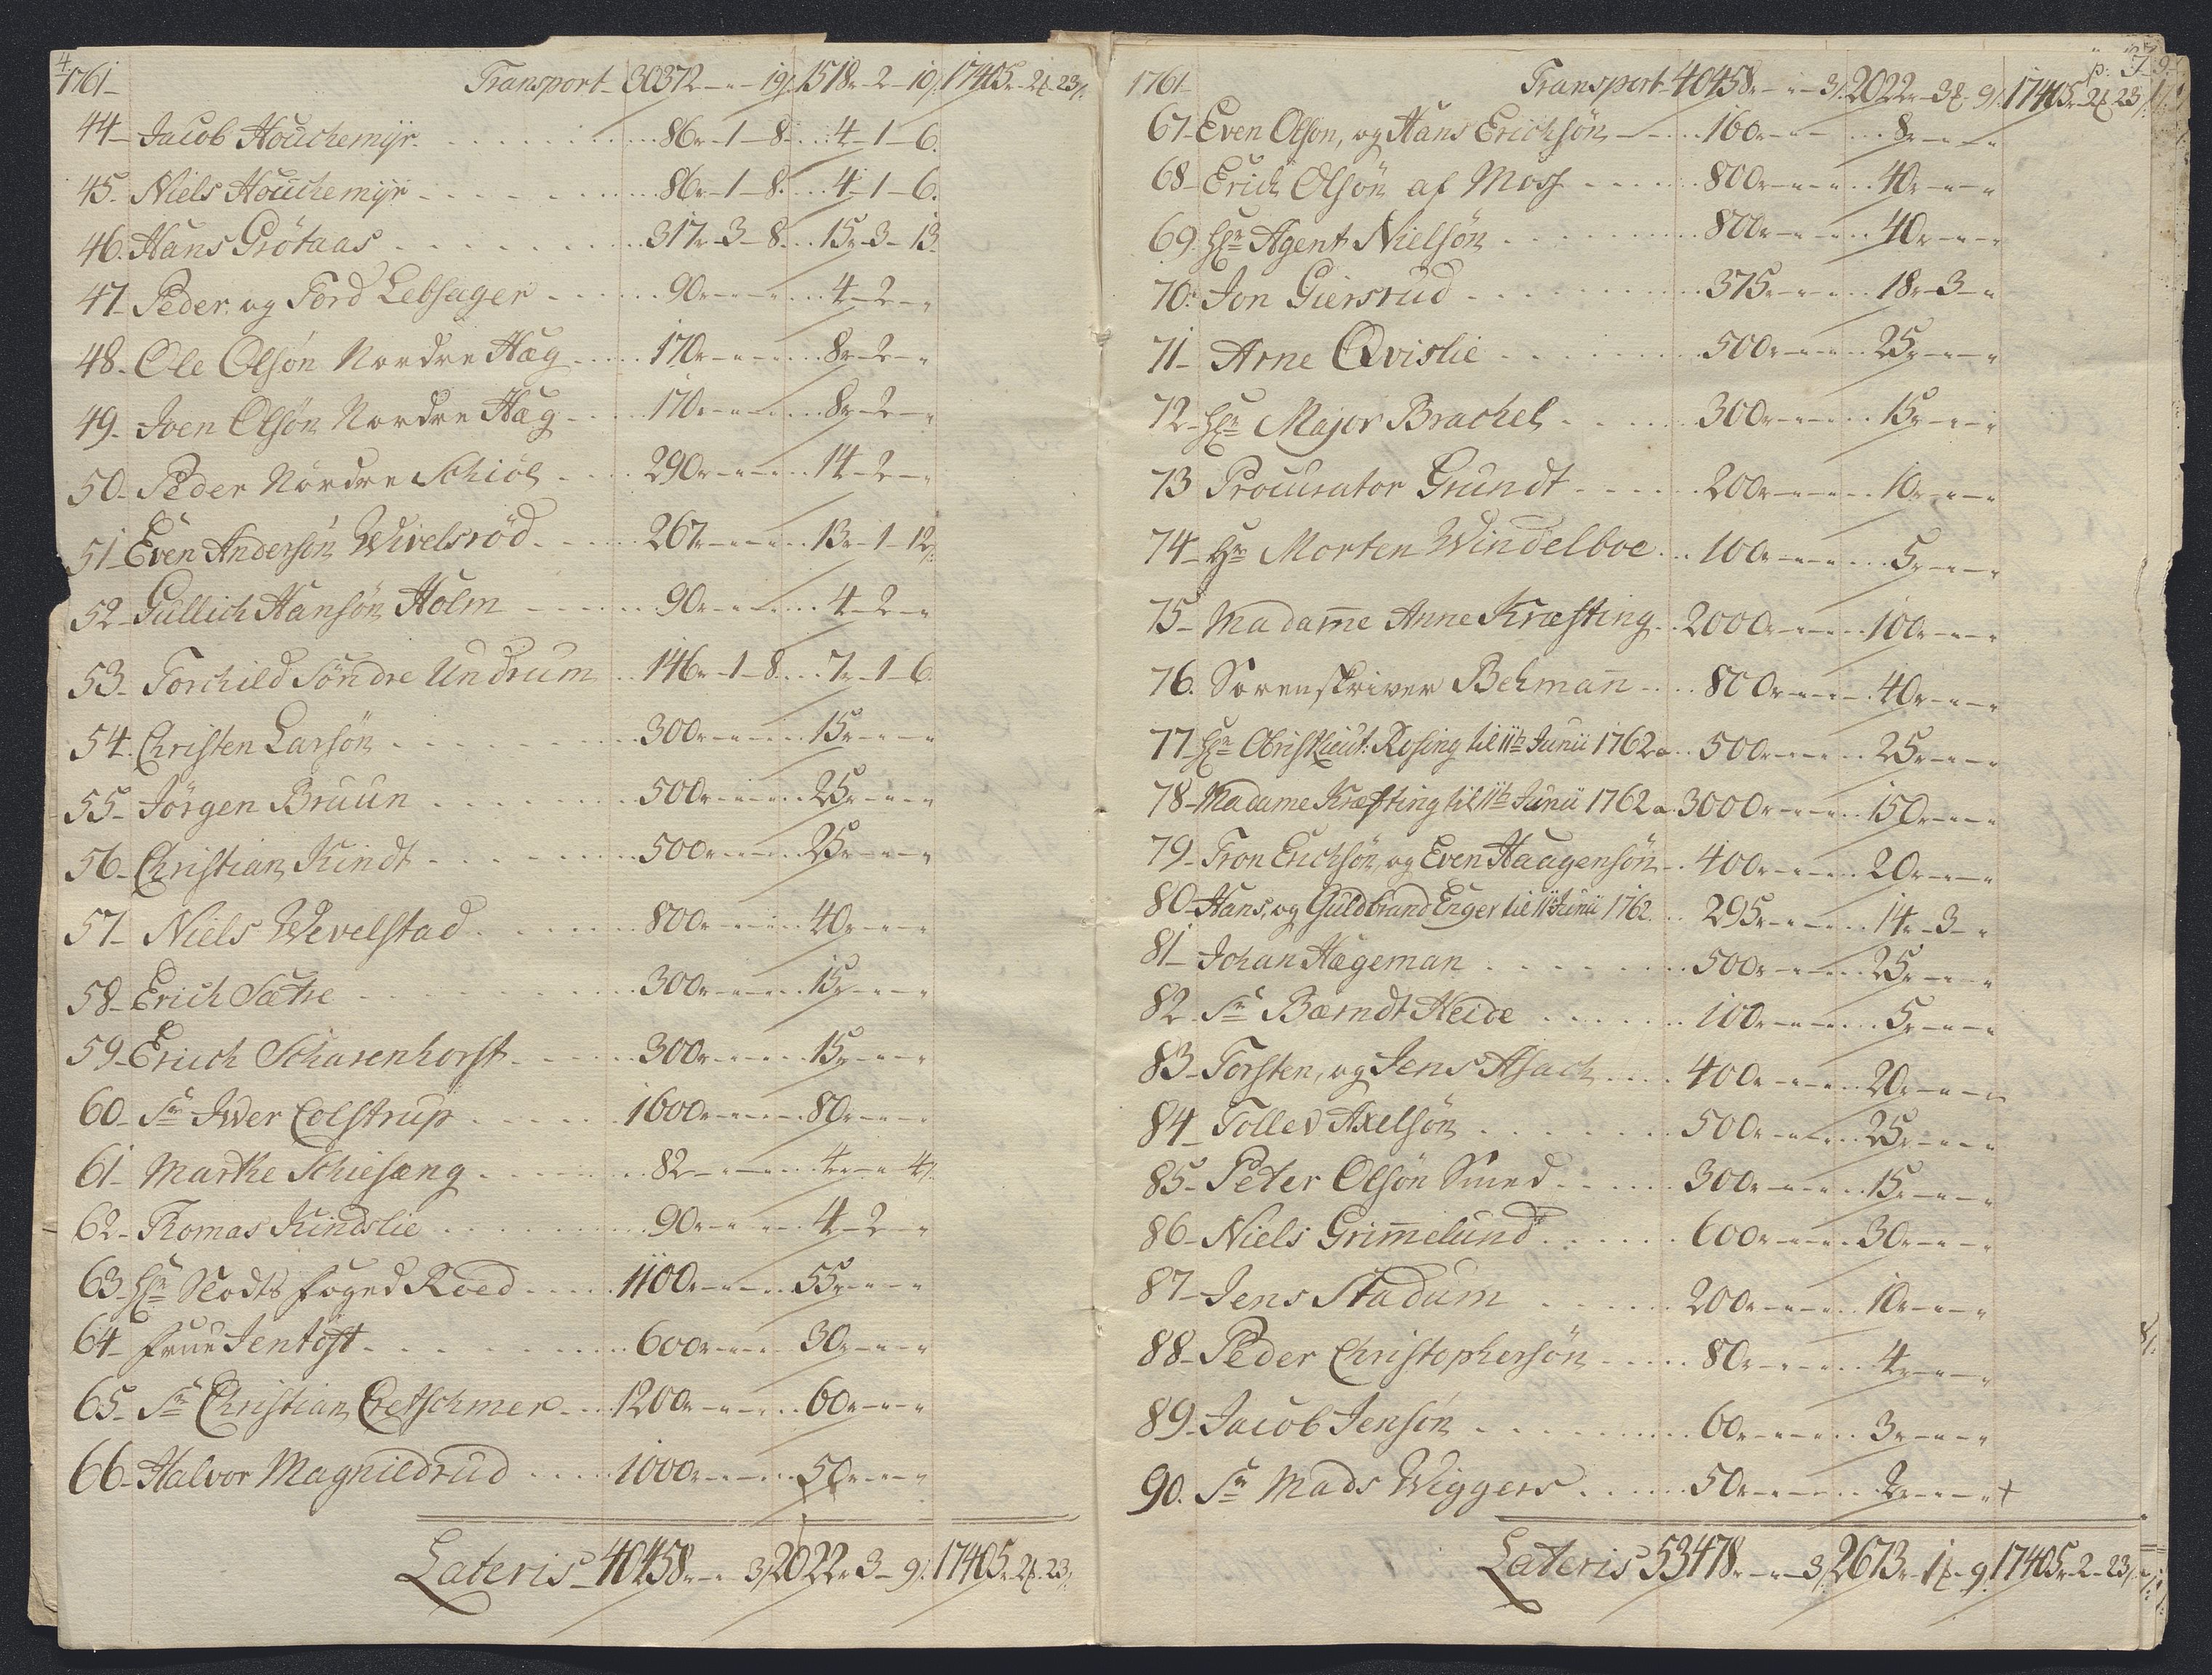 4.
1761 Transport 30372 - " - 19 1518 - 2 - 10 17405 - 2 - 23
44 Jacob Houchemyr 86 - 1 - 8 4 - 1 - 6
45 Niels Houchemyr 86 - 1 - 8 4 - 1 - 6
46 Hans Grötaas 317 - 3 - 8 15 - 3 - 13
47 Peder og Tord Lebsager 90 - " - " 4 - 2 - "
48 Ole Olsön Nordre Hæg 170 - " - " 8 - 2 - "
49 Joen Olsön Nordre Hæg 170 - " - " 8 - 2 - "
50 Peder Nordre Schiöl 290 - " - " 14 - 2 - "
51 Even Andersön Wivelsröd 267 - " - " 13 - 1 - 12
52 Gullich Hansön Holm 90 - " - " 4 - 2 - "
53 Torchild Söndre Undrum 146 - 1 - 8 7 - 1 - 6
54 Christen Larsön 300 - " - " 15 - " - "
55 Jörgen Bruun 500 - " - " 25 - " - "
56 Christian Kindt 500 - " - " 25 - " - "
57 Niels Wevelstad 800 - " - " 40 - " - "
58 Erich Sætre 300 - " - " 15 - " - "
59 Erich Scharenhorst 300 - " - " 15 - " - "
60 Sr Iver Colstrup 1600 - " - " 80 - " - "
61 Marthe Schiesæng 82 - " - " 4 - " - 4
62 Thomas Kindslie 90 - " - " 4 - 2 - "
63 Hr Slodts foged Roed 1100 - " - " 55 - " - "
64 Frue Jentoft 600 - " - " 30 - " - "
65 Sr Christian Cretschmer 1200 - " - " 60 - " - "
66 Halvor Magnildrud 1000 - " - " 50 - " - "
Lateris 40458 - " - 3 2022 - 3 - 9 17405 - 2 - 23
1761 Transport 40458 - " - 3 2022 - 3 - 9 17405 - 2 - 23
67 Even Olson, og Hans Erichsön 160 - " - " 8 - " - "
68 Erich Olsön af Moss 800 - " - " 40 - " - "
69 Hr Agent Nielsön 800 - " - " 40 - " - "
70 Jon Giersrud 375 - " - " 18 - 3 - "
71 Arne Qvislie 500 - " - " 25 - " - "
72 Hr Major Brachel 300 - " - " 15 - " - "
73 Procurator Grundt 200 - " - " 10 - " - "
74 Hr Morten Windelboe 100 - " - " 5 - " - "
75 Madame Anne Kræfting 2000 - " - " 100 - " - "
76 Sorenskriver Behman 800 - " - " 40 - " - "
77 Hr Obristlieut: Rosing til 11te Junii 1762 500 - " - " 25 - " - "
78 Madame Kræfting til 11te Junii 1762 3000 - " - " 150 - " - "
79 Tron Erichsön, og Even Haagensön 400 - " - " 20 - " - "
80 Hans, og Guldbrand Enger til 11te Junii 1762 295 - " - " 14 - 3 - "
81 Johan Hageman 500 - " - " 25 - " - "
82 Sr Bærndt Heide 100 - " - " 5 - " - "
83 Torsten, og Jens Asach 400 - " - " 20 - " - "
84 Tollev Axelsön 500 - " - " 25 - " - "
85 Peter Olsön Smed 300 - " - " 15 - " - "
86 Niels Grimelund 600 - " - " 30 - " - "
87 Jens Stadum 200 - " - " 10 - " - "
88 Peder Christophersön 80 - " - " 4 - " - "
89 Jacob Jensön 60 - " - " 3 - " - "
90 Sr Mads Wiggers 50 - " - " 2 - " - " +
Lateris 53478 - " - 3 2673 - 1 - 9 17405 - 2 - 23